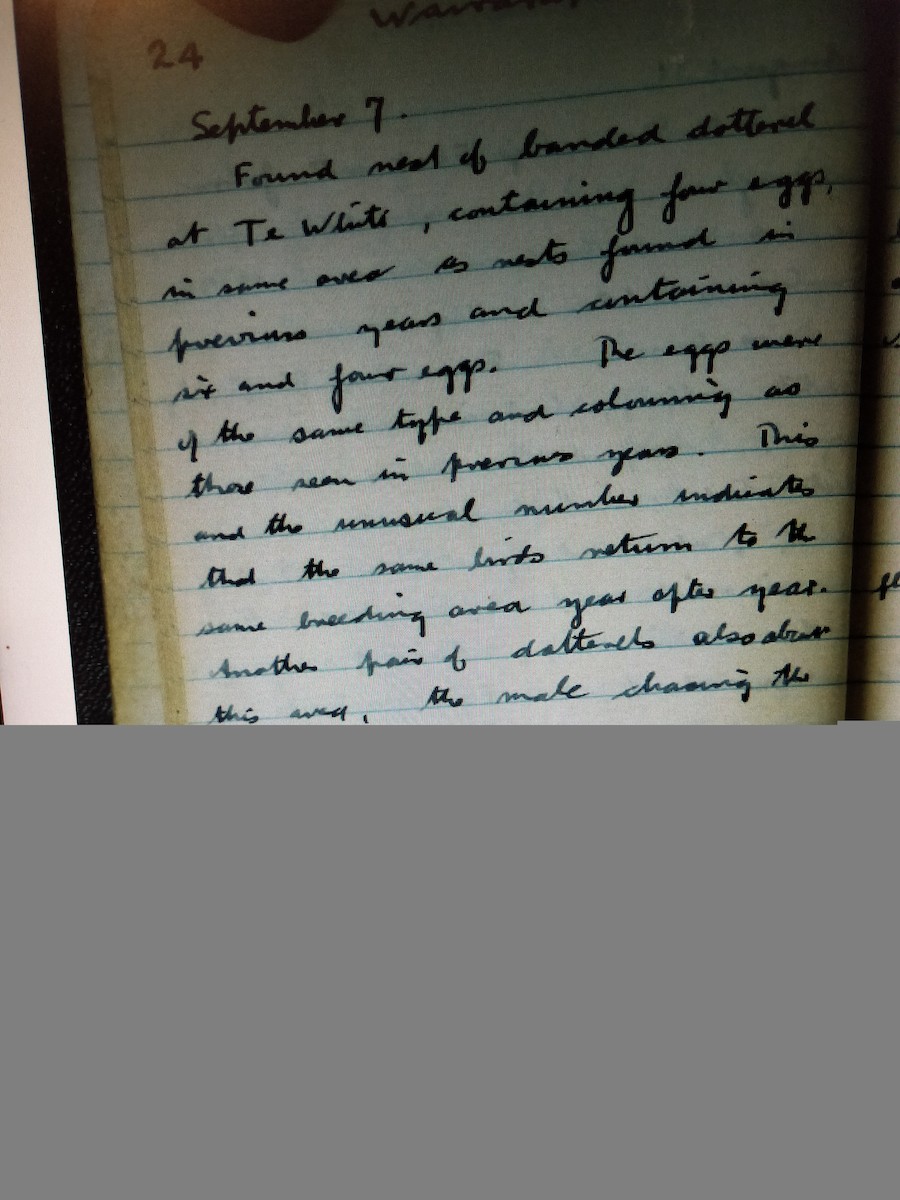 24
September 7.
Found nest of banded dotterel
at Te Whiti, containing four eggs,
in same area as nests found in
previous years and containing
six and four eggs. The eggs were
of the same type and colouring as
those seen in previous years. This
and the unusual number indicates
that the same birds return to the
same breeding area year after year.
Another pair of dotterels also about
this area, the male chasing the